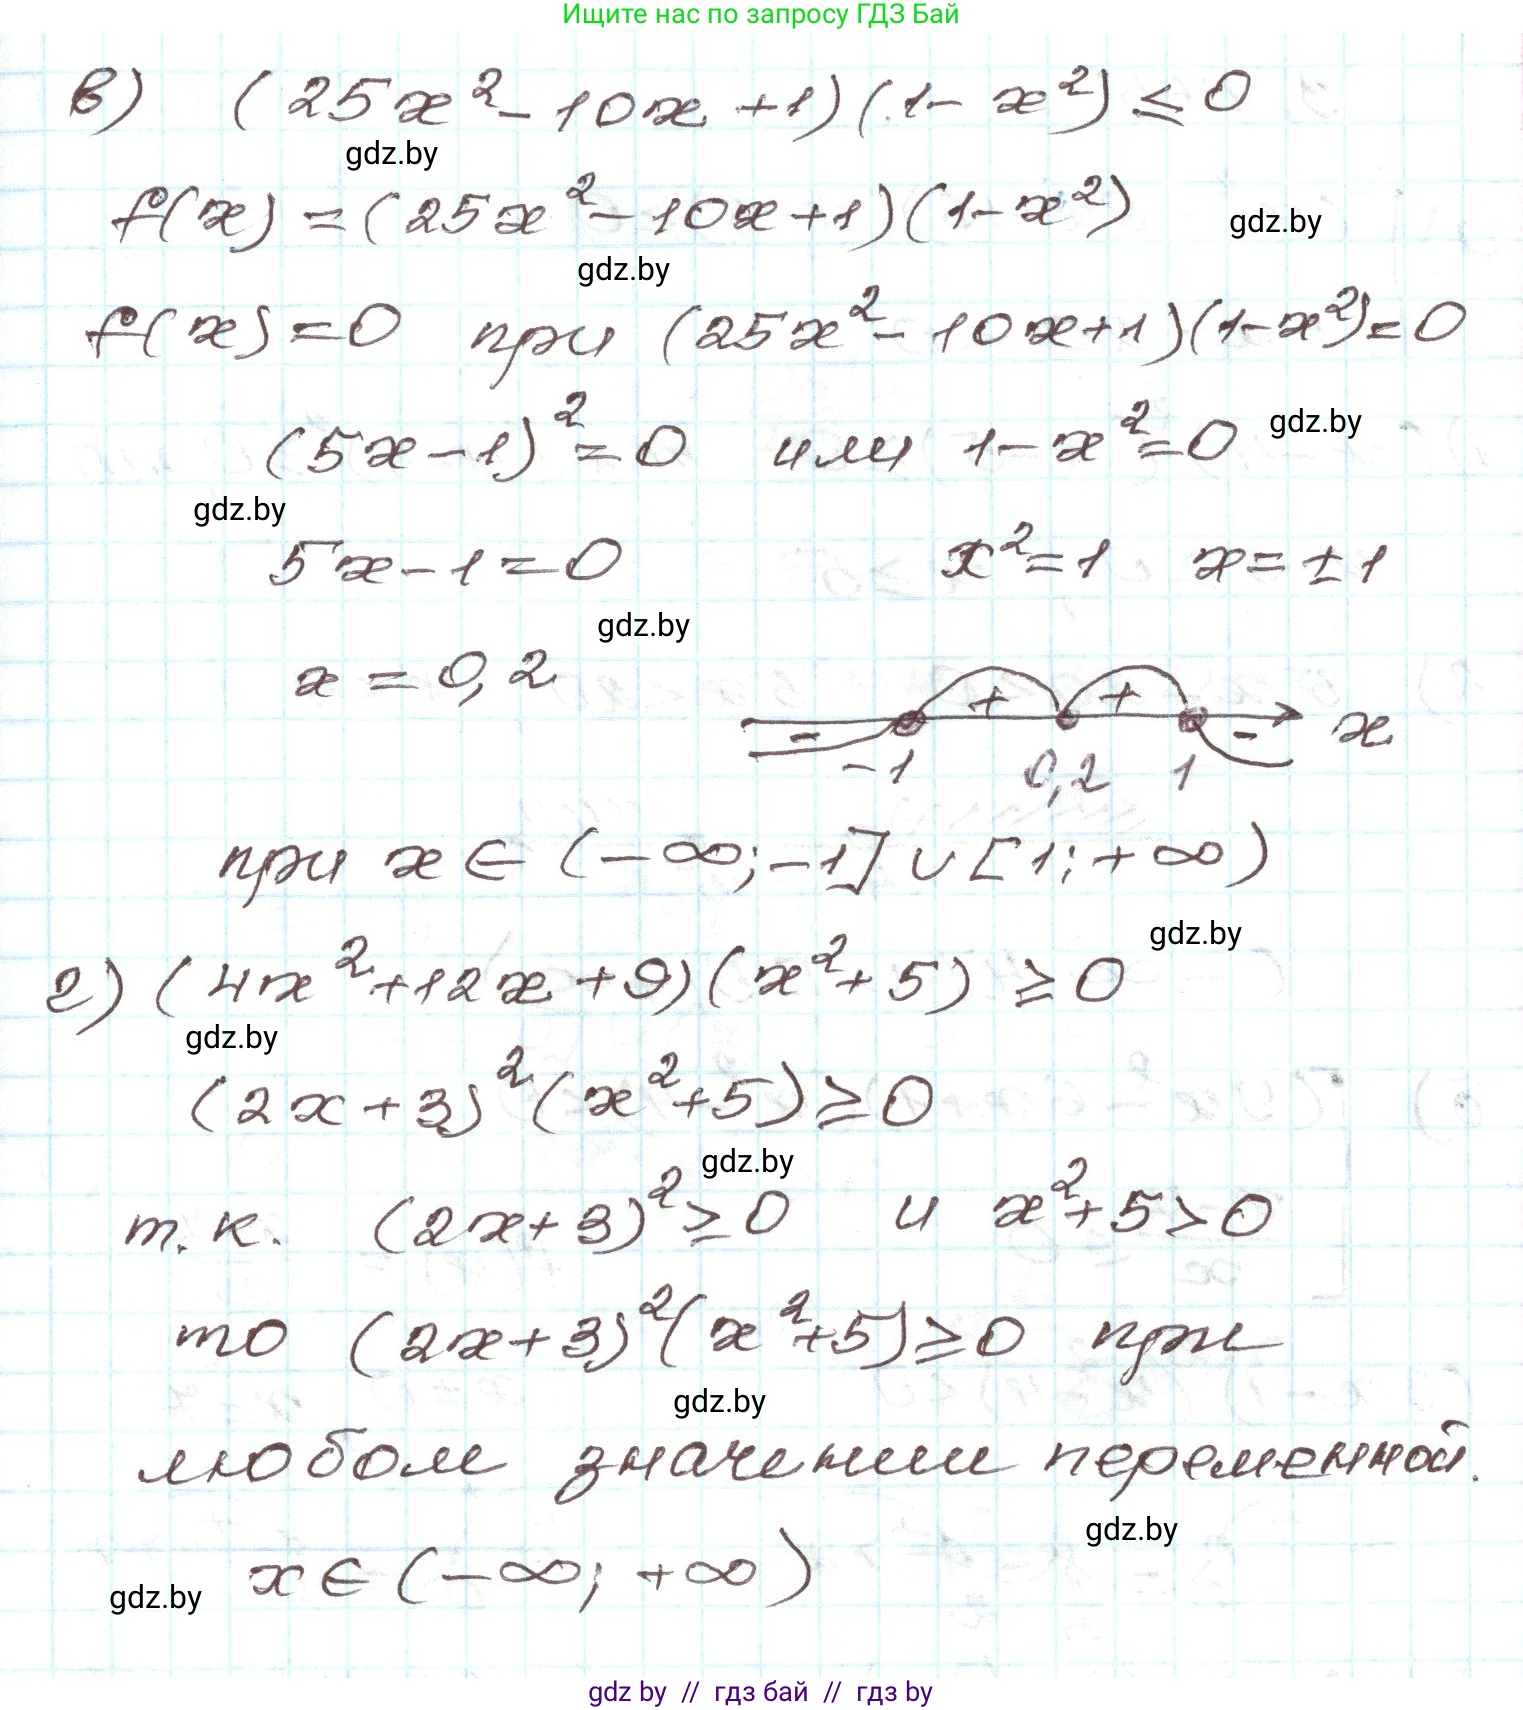 Ищите нас по запросу ГДЗ Бай
в) (25x² - 10x + 1)(1 - x²) ≤ 0
gdz.by
f(x) = (25x² - 10x + 1)(1 - x²)
gdz.by
gdz.by
f(x) = 0 при (25x² - 10x + 1)(1 - x²) = 0
(5x - 1)² = 0 или 1 - x² = 0
gdz.by
gdz.by
5x - 1 = 0 x² = 1 x = ± 1
gdz.by
x = 0,2
- + + - x
-1 0,2 1
при x ∈ (-∞; -1] ∪ [1; +∞)
gdz.by
г) (4x² + 12x + 9)(x² + 5) ≥ 0
gdz.by
(2x + 3)²(x² + 5) ≥ 0
gdz.by
т.к. (2x + 3)² ≥ 0 и x² + 5 > 0
то (2x + 3)²(x² + 5) ≥ 0 при
gdz.by
любом значении переменной.
gdz.by
x ∈ (-∞; +∞)
gdz.by
gdz by // гдз бай // гдз by